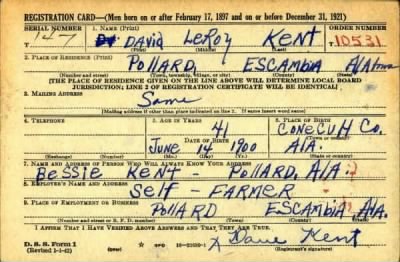 REGISTRATION CARD—(Men born on or after February 17, 1897 and on or before December 31, 1921)
SERIAL NUMBER 1. NAME (Print) ORDER NUMBER
T 47 David LeRoy Kent 10531
(First) (Middle) (Last)
2. PLACE OF RESIDENCE (Print)
Pollard, Escambia Ala
(Number and street) (Town, township, village, or city) (County) (State)
[THE PLACE OF RESIDENCE GIVEN ON THE LINE ABOVE WILL DETERMINE LOCAL BOARD
JURISDICTION; LINE 2 OF REGISTRATION CERTIFICATE WILL BE IDENTICAL]
3. MAILING ADDRESS
Same
[Mailing address if other than place indicated on line 2. If same insert word same]
4. TELEPHONE 5. AGE IN YEARS 6. PLACE OF BIRTH
41 Conecuh Co.
DATE OF BIRTH (Town or county)
June 14 1900 Ala.
(Exchange) (Number) (Mo.) (Day) (Yr.) (State or country)
7. NAME AND ADDRESS OF PERSON WHO WILL ALWAYS KNOW YOUR ADDRESS
Bessie Kent - Pollard, Ala
8. EMPLOYER'S NAME AND ADDRESS
Self - Farmer
9. PLACE OF EMPLOYMENT OR BUSINESS
Pollard Escambia, Ala.
(Number and street or R. F. D. number) (Town) (County) (State)
I AFFIRM THAT I HAVE VERIFIED ABOVE ANSWERS AND THAT THEY ARE TRUE.
D. S. S. Form 1
(Revised 1-1-42) x Dave Kent
(Registrant's signature)